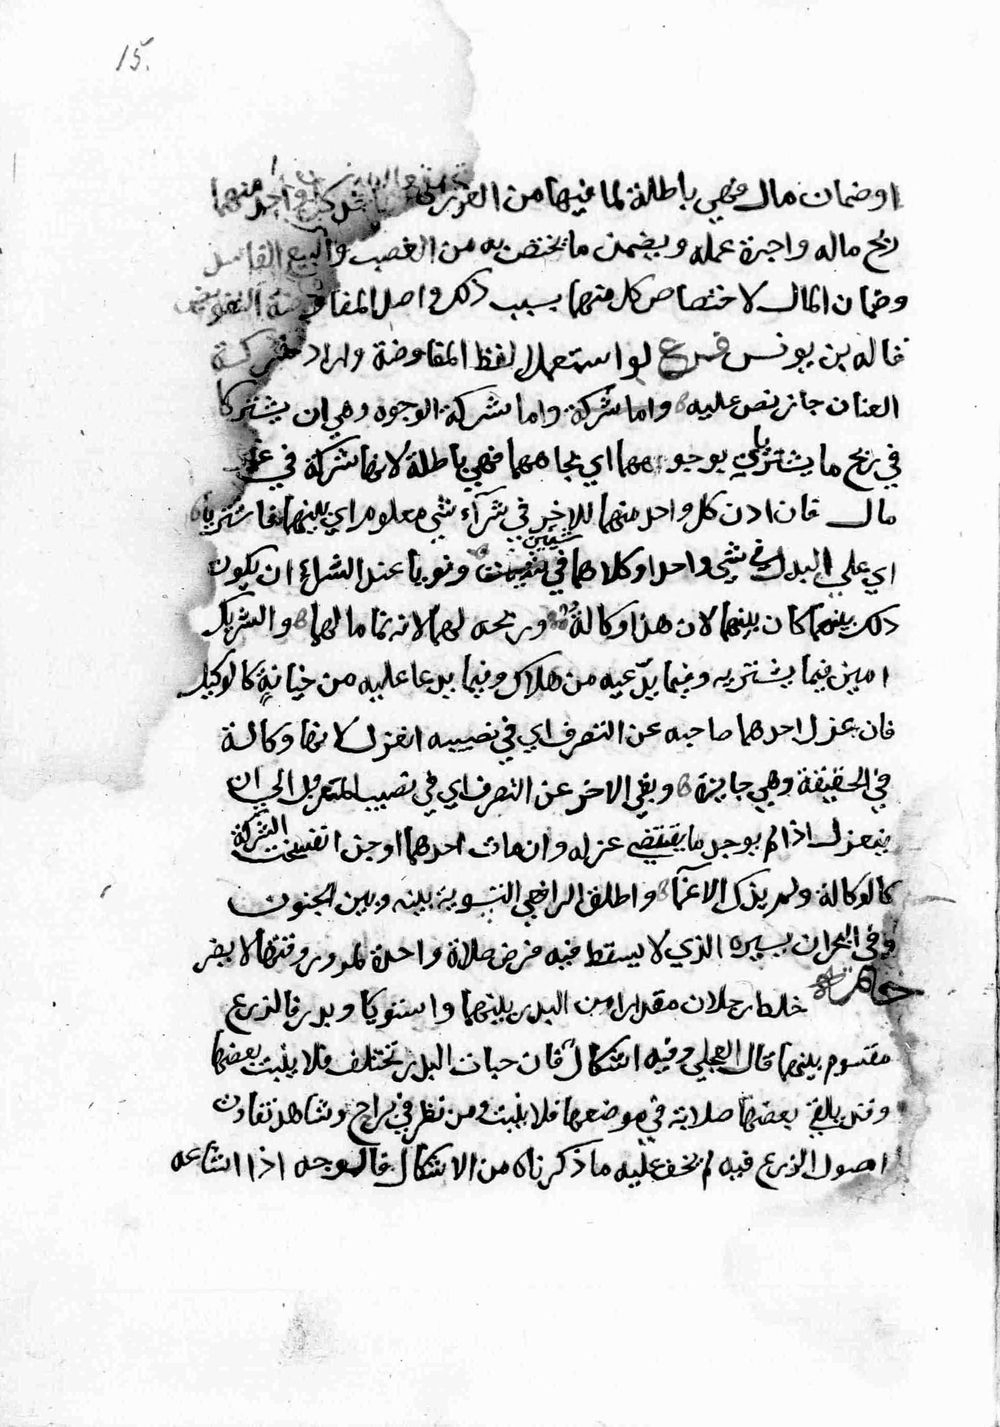 15.
اوضمان مال فهي باطلة لما فيها من الغرر واحد منهما
ربح ماله واجرة عمله ويضمن ما يختص به من الغصب والبيع الفاسد
وضمان المال لاختصاص كل منهما بسبب ذلك واصل المفاوضة التفويض
قاله بن يونس فرع لو استعملا لفظ المفاوضة وارادا شركة
العنان جاز نص عليه واما شركة واما شركة الوجوه وهي ان يشتركا
في ربح ما يشتريان بوجوههما اي بجاههما فهي باطلة لانها شركة في غير
مال فان اذن كل واحد منهما للاخر في شرآء شي معلوم اي بينهما فاشتريا
اي علي البدل في شي واحد او كلاهما في شيئين ونويا عند الشراء ان يكون
ذلك بينهما كان بينهما لان هذا وكالة وربحه لهما لانه نما مالهما والشريك
امين فيما يشتريه وفيما يدّعيه من هلاك وفيما يدعا عليه من خيانةٍ كالوكيل
فان عزل احدهما صاحبه عن التصرف اي في نصيبه انعزل لانها وكالة
في الحقيقة وهي جايزة وبقي الاخر عن التصرف اي في نصيب المتعزل الي ان
ينعزل اذا لم يوجد ما يقتضي عزله وان مات احدهما او جن انفسخت الشركة
كالوكالة ولم يذكر الاغمآ واطلق الرافعي التسوية بينه وبين الجنون
وفي البحر ان يسيره الذي لا يسقط فيه فرض صلاة واحدة لمرور وقتها لا يضر
خاتمة خلط رجلان مقدارا من البدر بينهما واستويا وبدر فالزرع
مقسوم بينهما قال العجلي وفيه اشكال فان حبات البدر تختلف فلا ينبت بعضها
وقد يلقي بعضها صلابة في موضعها فلا ينبت ومن نظر في براح وشاهد تفاوت
اصول الزرع فيه لم يخف عليه ما ذكرناه من الاشكال فالوجه اذا اشاعه